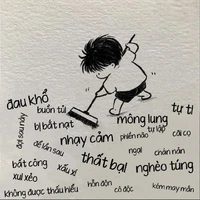 đau khổ
buồn tủi
mông lung
tự ti
đợi sau này
bị bắt nạt
tự lập
cãi cọ
phiền não
để lần sau
nhạy cảm
ngại
chán nản
bất công
xấu xí
thất bại
nghèo túng
xui xẻo
hỗn độn
không được thấu hiểu
cô độc
kém may mắn